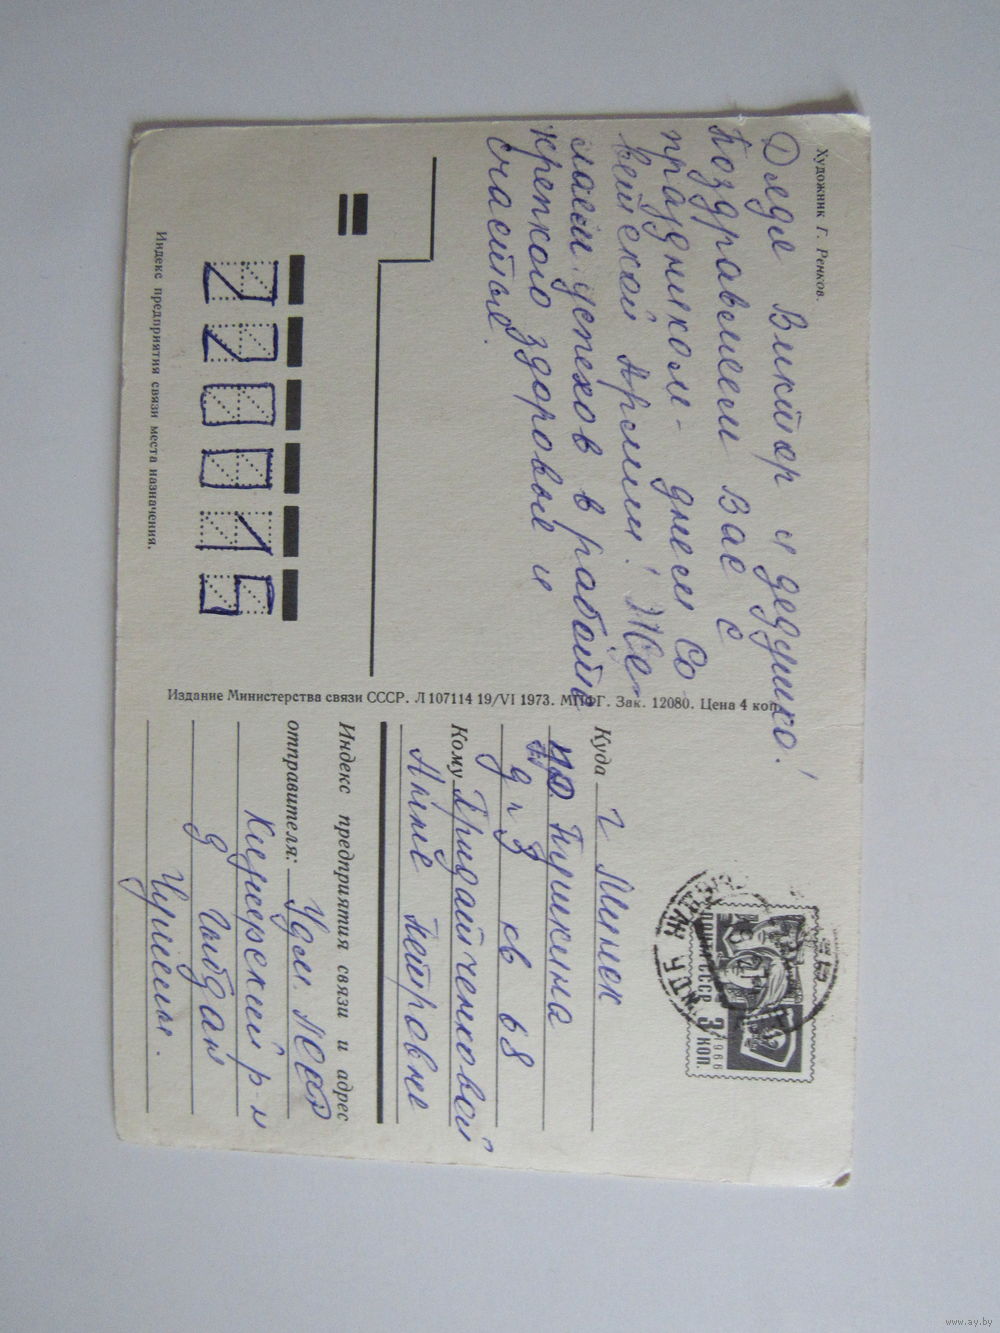 Художник Г. Ренков.
Дядя Виктор и дедушко!
Поздравляем вас с
праздником - днем Со
ветской Армии! Же-
лаем успехов в работе
крепкого здоровья и
счастья.
220015
Индекс предприятия связи места назначения.
Издание Министерства связи СССР. Л 107114 19/VI 1973. МПФГ. Зак. 12080. Цена 4 коп.
ПОЧТА СССР 3 КОП.
1966
Куда г Минск
Пушкина
кв 68
Кому Гридайченковой
Анне Петровне
Индекс предприятия связи и адрес
отправителя: Удм. АССР
Кизнерский р-н
д Гыбдан
www.ay.by